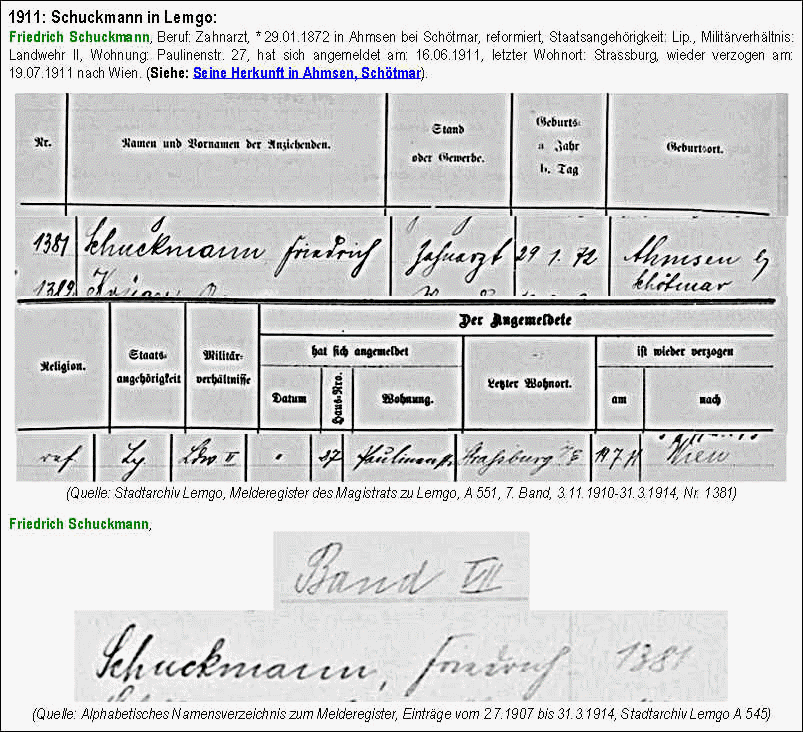 1911: Schuckmann in Lemgo:
Friedrich Schuckmann, Beruf: Zahnarzt, * 29.01.1872 in Ahmsen bei Schötmar, reformiert, Staatsangehörigkeit: Lip., Militärverhältnis:
Landwehr II, Wohnung: Paulinenstr. 27, hat sich angemeldet am: 16.06.1911, letzter Wohnort: Strassburg, wieder verzogen am:
19.07.1911 nach Wien. (Siehe: Seine Herkunft in Ahmsen, Schötmar).
Nr.
Namen und Vornamen der Anziehenden.
Stand
oder Gewerbe.
Geburts-
a. Jahr
b. Tag
Geburtsort.
1381 Schuckmann Friedrich Zahnarzt 29 1. 72 Ahmsen b/
Schötmar
1382
Der Angemeldete
Religion.
Staats-
angehörigkeit
Militär-
verhältnisse
hat sich angemeldet
Datum
Haus-Nro.
Wohnung.
Letzter Wohnort.
ist wieder verzogen
am
nach
ref Lip. Ldw II " 27 Paulinenstr. Strassburg i/E 19 7 11 Wien
(Quelle: Stadtarchiv Lemgo, Melderegister des Magistrats zu Lemgo, A 551, 7. Band, 3.11.1910-31.3.1914, Nr. 1381)
Friedrich Schuckmann,
Band VII
Schuckmann, Friedrich 1381
(Quelle: Alphabetisches Namensverzeichnis zum Melderegister, Einträge vom 2.7.1907 bis 31.3.1914, Stadtarchiv Lemgo A 545)